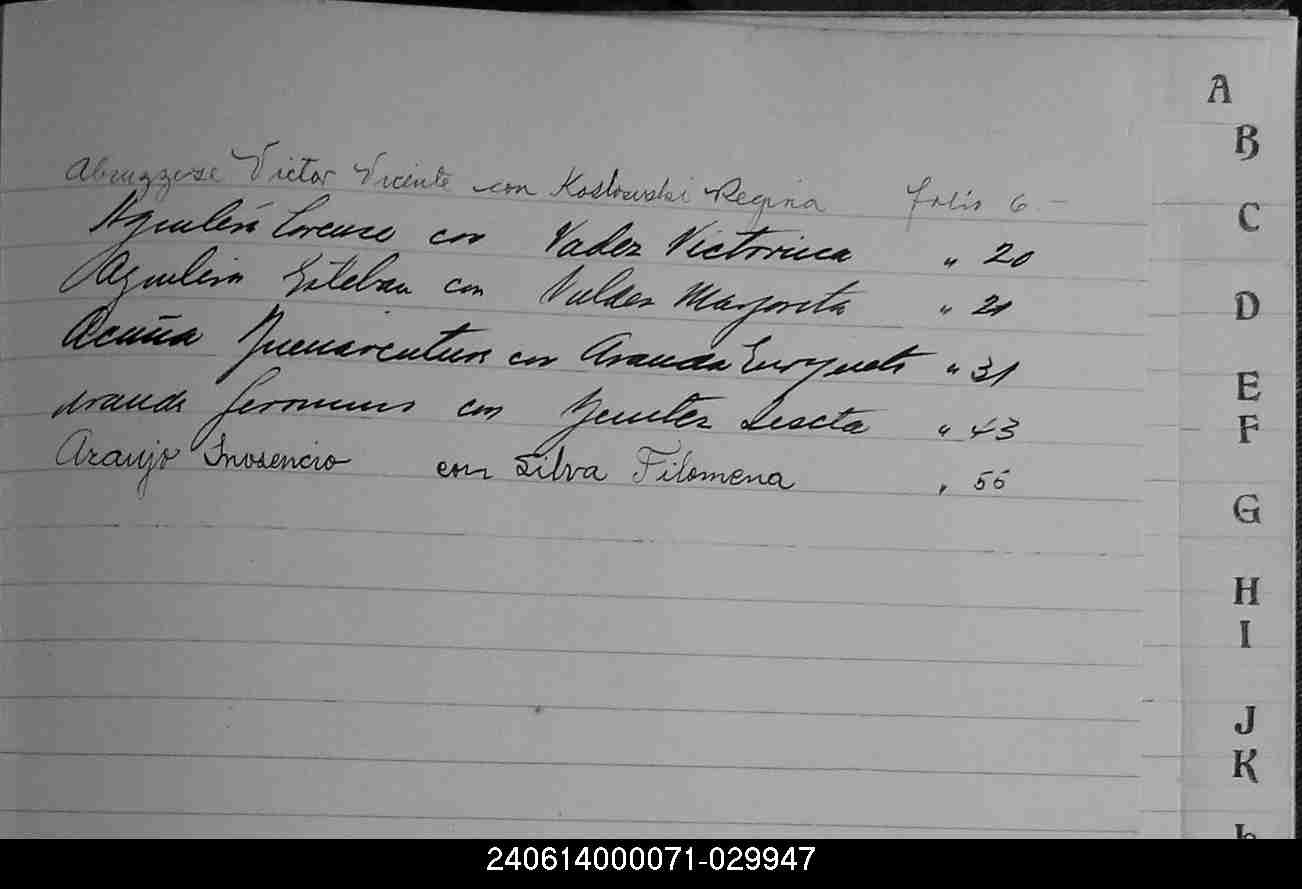 Abruzzese Victor Vicente con Koslowski Regina folio 6 -
Aguilera Lorenzo con Valdez Victorina " 20
Aguilera Esteban con Valdez Margarita " 21
Acuña Buenaventura con Aranda Enriqueta " 31
Aranda Geronimo con Benitez " 43
Araujo Inosencio con Silva Filomena " 55
A
B
C
D
E
F
G
H
I
J
K
L
240614000071-029947